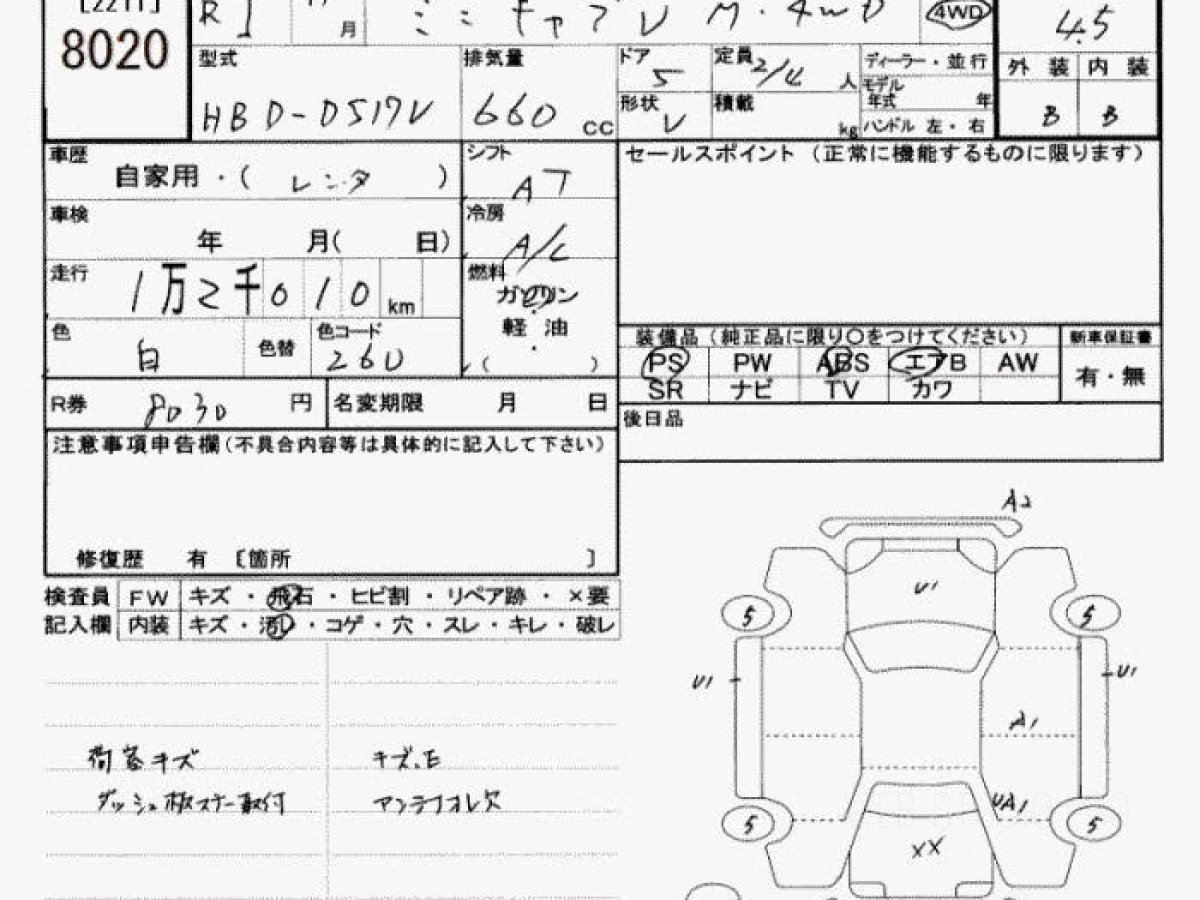 [2211]
8020
R1 月
ミニキャブV M・4WD 4WD
4.5
型式 HBD-DS17V
排気量 660 CC
ドア 5
定員 2/4 人
ディーラー・並行
モデル年式 年
形状 V
積載 kg
ハンドル 左・右
外装 内装
B B
車歴 自家用・( レンタ )
シフト AT
セールスポイント (正常に機能するものに限ります)
車検 年 月( 日)
冷房 A/C
走行 1万2千010km
燃料 ガソリン
軽油
( )
色 白 色替 色コード 260
装備品 (純正品に限り○をつけてください) 新車保証書
PS PW ABS エアB AW 有・無
SR ナビ TV カワ
R券 8030 円 名変期限 月 日
後日品
注意事項申告欄(不具合内容等は具体的に記入して下さい)
修復歴 有 〔箇所 〕
検査員 FW キズ・飛石・ヒビ割・リペア跡・×要
記入欄 内装 キズ・汚レ・コゲ・穴・スレ・キレ・破レ
荷室キズ キズ、E
ダッシュ板ステー取付 アンテナオレ欠
A2
U1
5 5
U1 U1
A1
UA1
5 5
XX